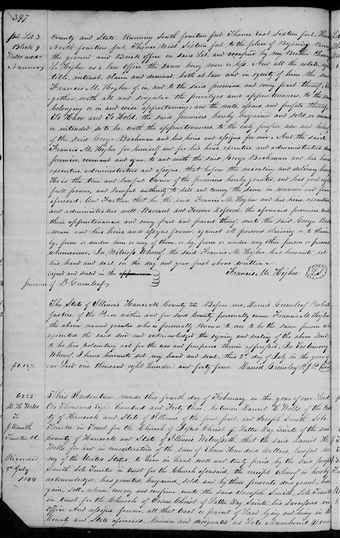 397
pt Lot 3
Block 9
Wells add.
Nauvoo
County and State Running South fourteen feet Thence East Sixteen feet, Thence
North fourteen feet, Thence West Sixteen feet to the place of Begining Being
the ground and Brick office on said Lot, and occupied by my Brother
L. Higbee as a law office the same being more or less. And all the estate
title, interest, claim and demand, both at law and in equity of him the said
Francis M. Higbee of in, and to the said premises and every part thereof to-
gether, with all and singular the privileges and appurtenances to the same
belonging or in any wise appertaining and the rents issues and profits thereof
To Have and To Hold, the said premises hereby bargained and sold, or meant
or intended so to be with the appurtenances to the only proper use and behoof
of the said George Bachman and his heirs and assigns forever. And the said
Francis M. Higbee for himself and for his heirs, executors, and administrators
promise, covenant and agree to and with the said George Bachman and his heirs
executors administrators and assigns that before the ensealing and delivery hereof
He is the true and lawful Owner of the premises hereby granted, and has good right
full power, and lawful authority to sell and convey the same in manner and form
aforesaid. And Further that he the said Francis M. Higbee and his heirs, executors
and administrators will Warrant and Forever Defend, the aforesaid premises with
their appurtenances, and every part and parcel thereof, unto the said George Bach-
man and his heirs and assigns forever, against all persons claiming or to claim
by, from or under him or any of them, or by, from or under any other person or persons
whomsoever. In Witness Whereof, the said Francis M. Higbee has hereunto set
his hand and seal on the day and year first above written
Signed and sealed in the
presence of D. Greenleaf
Francis M. Higbee
The State of Illinois Hancock County SS. Before me, David Greenleaf Probate
Justice of the Peace within and for said County personally came Francis M. Higbee
the above named grantor who is personally known to me to be the same person who
granted the said deed and acknowledged the signing and sealing of the above deed
to be his voluntary act for the uses and purposes therein expressed. In Testimony
Whereof, I have hereunto set my hand and seal, this 2d day of July in the year of
our Lord one thousand eight hundred and forty four David Greenleaf
D. H. Wells
To
J. Smith
Trustee &c.
Received
July
1844
This Indenture made this fourth day of February in the year of our Lord
One Thousand eight hundred and Forty three between Daniel H. Wells of the County
of Hancock and State of Illinois of the first part, and Joseph Smith Sole
Trustee in Trust for the Church of Jesus Christ of Latter Day Saints of the said
County of Hancock and State of Illinois Witnesseth, that the said Daniel H.
Wells for and in consideration of the sum of three Hundred Dollars, lawful money
of the United States to them in hand well and truly paid by the said Joseph
Smith Sole Trustee in trust for the Church aforesaid, the receipt whereof is hereby
acknowledged, has granted, bargained, sold and by these presents does grant, bar-
gain, sell, release, convey, and confirm unto the said Joseph Smith, Sole Trustee
in trust for the Church of Jesus Christ of Latter Day Saints, his successors in
office And assigns forever, all that tract or parcel of Land lying and being in the
County and State aforesaid, known and designated as Lots Numbered